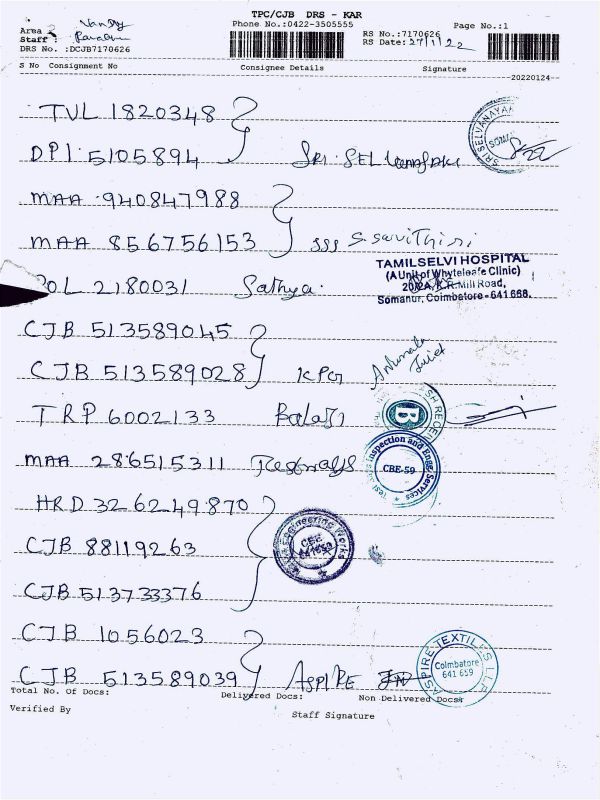 TPC/CJB DRS - KAR
Area :
Phone No.:0422-3505555
Staff :
DRS No. :DCJB7170626
RS No.:7170626
RS Date: 27/1/22
Page No.:1
S No Consignment No Consignee Details Signature
20220124
TVL 1820348
DPI 5105894 SRI SEL
SRI SELVANAYAK
MAA 940847988
MAA 856756153 SSS S. Savithiri
TAMILSELVI HOSPITAL
(A Unit of Whyteleafe Clinic)
20/2A, K.R. Mill Road,
Somanur, Coimbatore - 641 668.
OL 2180031 Sathya
CJB 513589045
CJB 513589028 KPG
TRP 6002133 Balaji
B
MAA 286515311
Inspection and Engg. Services
CBE-59
HRD 326249870
CJB 88119263
Engineering Works
CJB 513733376
CJB 1056023
CJB 513589039 ASPIRE
ASPIRE TEXTILES LLP
Coimbatore
641 659
Total No. Of Docs: Delivered Docs: Non Delivered Docs:
Verified By
Staff Signature